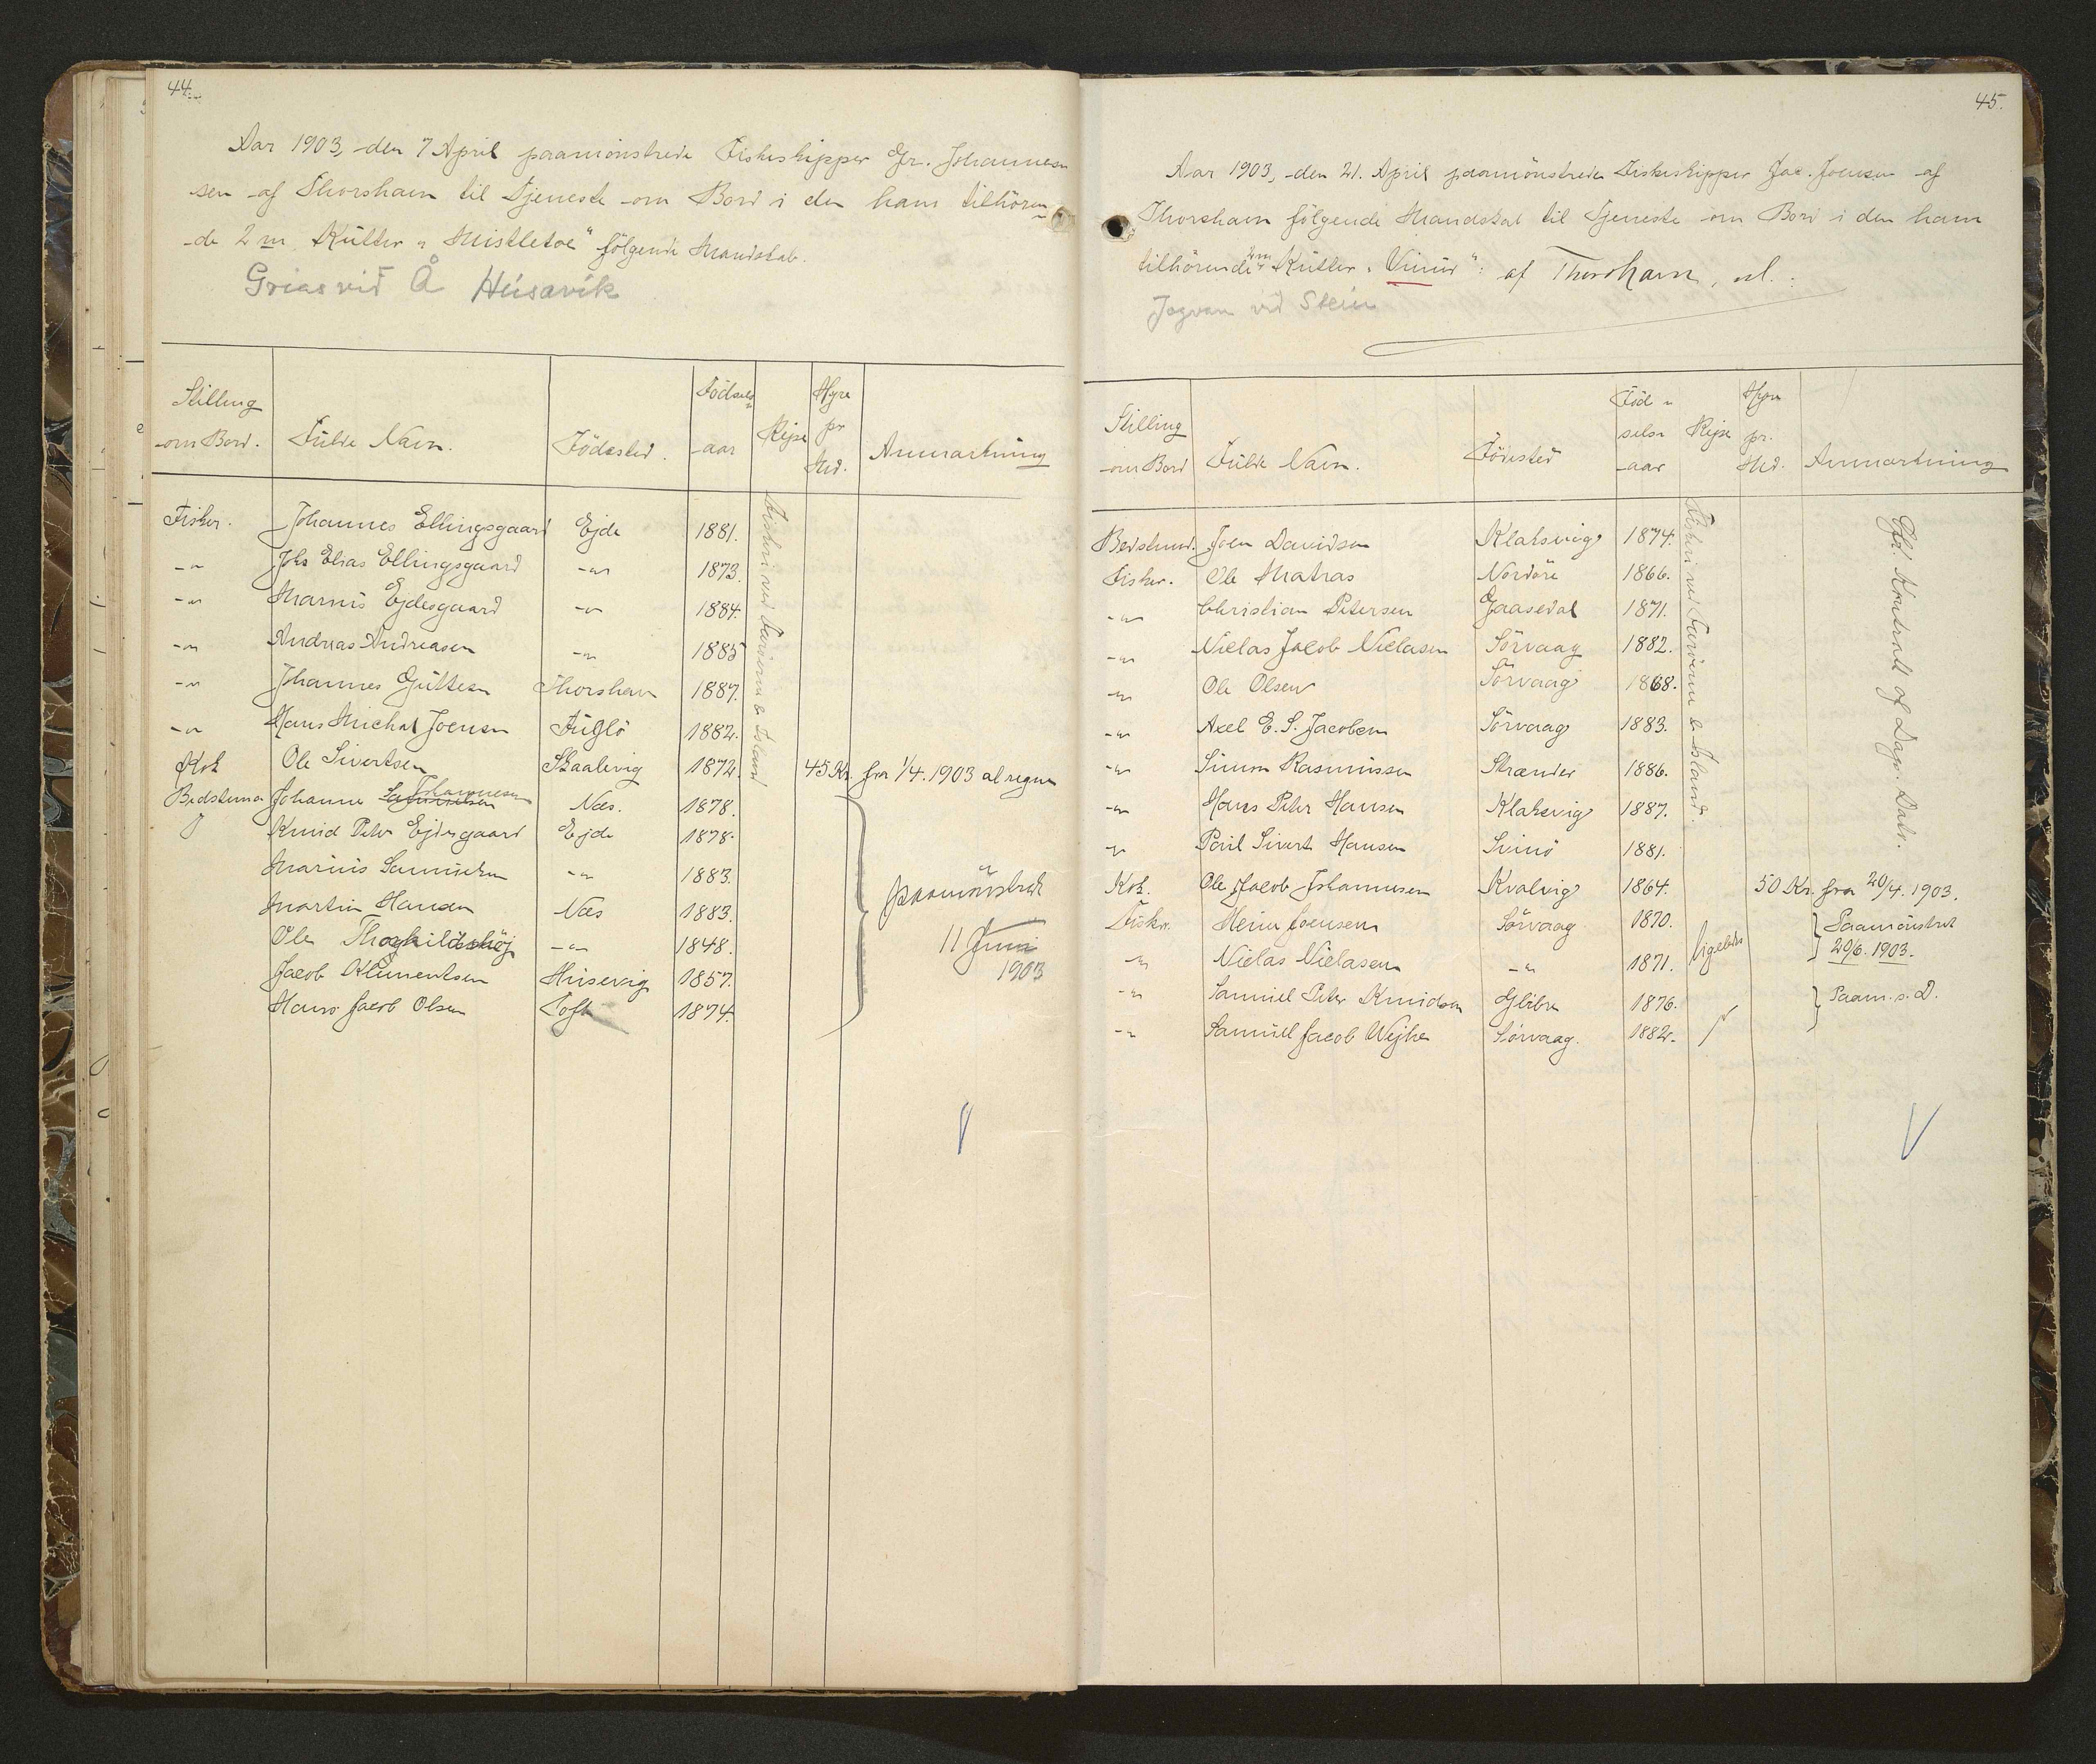 44.
Aar 1903, den 7 April paamönstrede Fiskeskipper Gr. Johannes
sen af Thorshavn til Tjeneste om Bord i den ham tilhören
de 2 m Kutter "Mistletoe" fölgende Mandskab.
Grias við Á Húsavík
Stilling om Bord. Fulde Navn. Födested. Födsels aar Rejse Hyre pr Md. Anmærkning
Fiskeri ved Færöerne & Island
Fisker. Johannes Ellingsgaard Ejde 1881.
-"- Johs Elias Ellingsgaard -"- 1873.
-"- Marius Ejdesgaard -"- 1884.
-"- Andreas Andreasen -"- 1885
-"- Johannes Guttesen Thorshavn 1887.
-"- Hans Michal Joensen Fuglö 1882.
Kok Ole Sivertsen Skaalevig 1872. 45 Kr. fra 1/4. 1903 at regne
Bedstemand Johannes Samuelsen Johannesen Næs. 1878.
Knud Peter Ejdesgaard Ejde 1878.
Marius Samuelsen -"- 1883.
Martin Hansen Næs 1883.
Ole Thorkildshöj -"- 1848.
Jacob Klementsen Husevig 1857.
Hans Jacob Olsen Toft 1874.
paamönstret
11 Juni
1903
45.
Aar 1903, den 21. April paamönstrede Fiskeskipper Jac. Joensen af
Thorshavn fölgende Mandskab til Tjeneste om Bord i den ham
tilhörende 2m Kutter "Vinur": af Thorshavn, nl.:
Jógvan við Stein
Stilling om Bord Fulde Navn. Födested Föd- sels- aar Rejse Hyre pr. Md. Anmærkning
Fiskeri ved Færöerne & Island.
Gfr. Kontrakt af Dags Dato.
Bedstmd. Joen Davidsen Klaksvig 1874.
Fisker. Ole Matras Nordöre 1866.
-"- Christian Petersen Gaasedal 1871.
-"- Nielas Jacob Nielasen Sörvaag 1882.
-"- Ole Olsen Sörvaag 1868.
-"- Axel E. S. Jacobsen Sörvaag 1883.
-"- Simon Rasmussen Strænder 1886.
-"- Hans Peter Hansen Klaksvig 1887.
-"- Poul Sivert Hansen Svinö 1881.
Kok. Ole Jacob Johannesen Kvalvig 1864. 50 Kr. fra 20/4. 1903.
Fisker. Heine Joensen Sörvaag 1870. ligeledes Paamönstret
-"- Nielas Nielasen -"- 1871. 20/6. 1903.
-"- Samuel Peter Knudsen Glibre 1876. Paam. s. D.
-"- Samuel Jacob Wejhe Sörvaag. 1882.